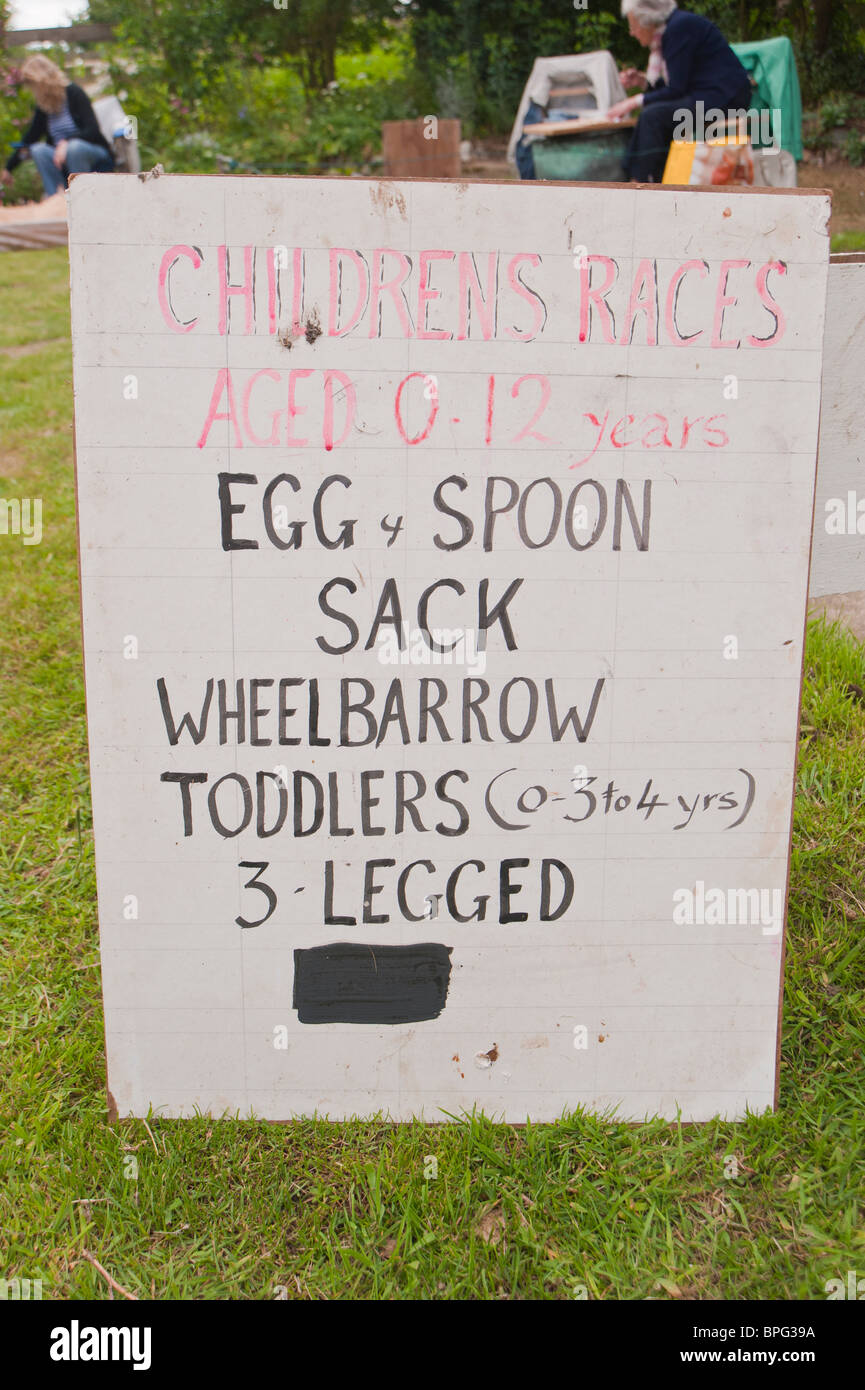 CHILDRENS RACES
AGED 0-12 years
EGG & SPOON
SACK
WHEELBARROW
TODDLERS (0-3 to 4 yrs)
3-LEGGED
alamy
Image ID: BPG39A
www.alamy.com